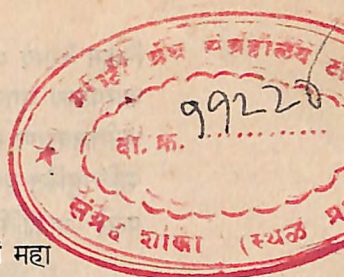 मराठी ग्रंथ संग्रहालय
दा. क्र. 99228
संग्रह शाखा (स्थळ
महा